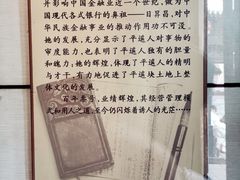 并影响中国金融业近一个世纪，做为中
国现代各式银行的鼻祖——日昇昌，对中
华民族金融事业的推动作用功不可没。
她的发展，充分显示了平遥人对事物的
审度能力，也表明了平遥人独有的胆量
和魄力；她的辉煌，体现了平遥人的精明
与才干，有力地促进了平遥块土地上整
体文化的发展。
百年票号，业绩辉煌，其经营管理模
式和用人之道，至今仍闪烁着诱人的光茫……